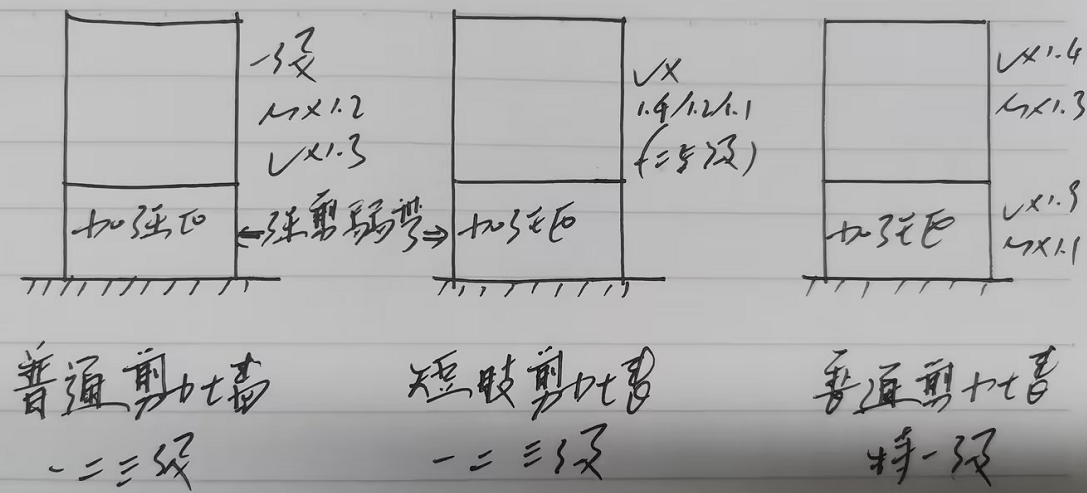 一级
M×1.2
V×1.3
加强区
⇐强剪弱弯⇒
V×
1.4/1.2/1.1
(一二三级)
加强区
V×1.4
M×1.3
加强区
V×1.9
M×1.1
普通剪力墙
一二三级
短肢剪力墙
一二三级
普通剪力墙
特一级